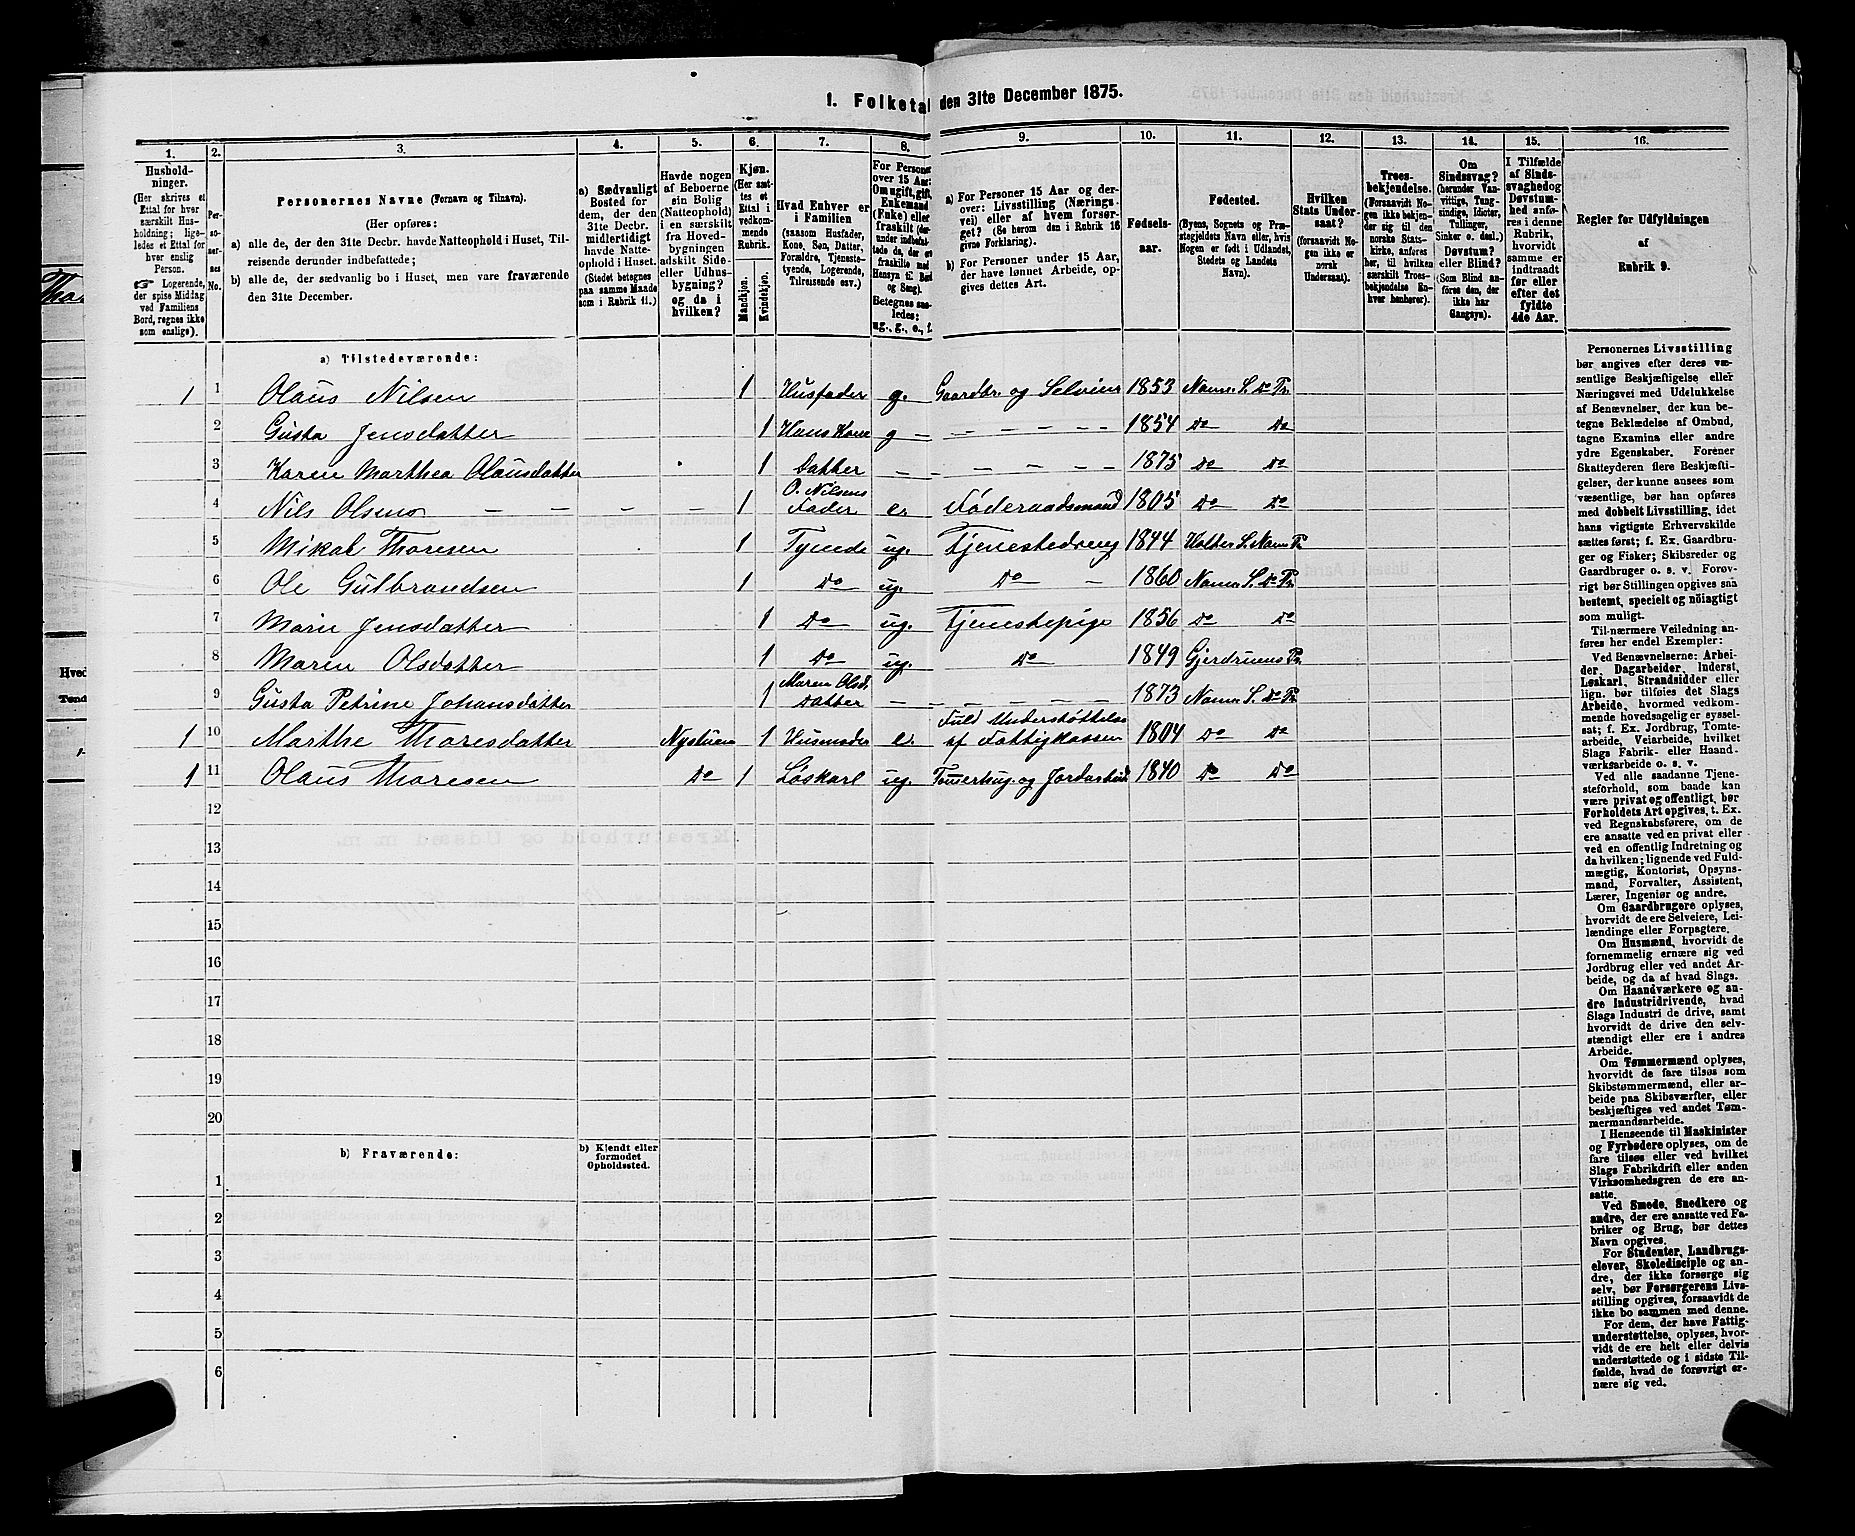 1. Folketal den 31te December 1875.
1. 2. 3. 4. 5. 6. 7. 8. 9. 10. 11. 12. 13. 14. 15. 16.
Hushold-
ninger.
(Her skrives et
Ettal for hver
særskilt Hus-
holdning; lige-
ledes et Ettal for
hver enslig
Person.
Logerende,
der spise Middag
ved Familiens
Bord, regnes ikke
som enslige).
Per-
soner-
nes
No.
Personernes Navne (Fornavn og Tilnavn).
(Her opføres:
a) alle de, der den 31te Decbr. havde Natteophold i Huset, Til-
reisende derunder indbefattede;
b) alle de, der sædvanlig bo i Huset, men vare fraværende
den 31te December.
a) Sædvanligt
Bosted for
dem, der den
31te Decbr.
midlertidigt
havde Natte-
ophold i Huset.
(Stedet betegnes
paa samme Maade
som i Rubrik 11.)
Havde nogen
af Beboerne
sin Bolig
(Natteophold)
i en særskilt
fra Hoved-
bygningen
adskilt Side-
eller Udhus-
bygning?
og da i
hvilken?
Kjøn.
(Her sæt-
tes et
Ettal i
vedkom-
mende
Rubrik.
Mandkjøn.
Kvindekjøn.
Hvad Enhver er
i Familien
(saasom Husfader,
Kone, Søn, Datter,
Forældre, Tjeneste-
tyende, Logerende,
Tilreisende osv.)
For Personer
over 15 Aar:
Om ugift, gift,
Enkemand
(Enke) eller
fraskilt (der-
under indbefat-
tede de, der ere
fraskilte med
Hensyn til Bord
og Seng).
Betegnes saa-
ledes:
ug., g., e., f.
a) For Personer 15 Aar og der-
over: Livsstilling (Nærings-
vei) eller af hvem forsør-
get? (Se herom den i Rubrik 16
givne Forklaring).
b) For Personer under 15 Aar,
der have lønnet Arbeide, op-
gives dettes Art.
Fødsels-
aar.
Fødested.
(Byens, Sognets og Præ-
stegjeldets Navn eller, hvis
Nogen er født i Udlandet,
Stedets og Landets
Navn).
Hvilken
Stats Under-
saat?
(forsaavidt No-
gen ikke er
norsk
Undersaat).
Troes-
bekjendelse.
(Forsaavidt No-
gen ikke bekjen-
der sig til den
norske Stats-
kirke, anføres
her, til hvilken
særskilt Troes-
bekjendelse En-
hver henhører).
Om
Sindssvag?
(herunder Van-
vittige, Tung-
sindige, Idioter,
Tullinger,
Sinker o. desl.)
Døvstum?
eller Blind?
(Som Blind an-
føres den, der
ikke har
Gangsyn).
I Tilfælde
af Sinds-
svaghed og
Døvstum-
hed anfø-
res i denne
Rubrik,
hvorvidt
samme er
indtraadt
før eller
efter det
fyldte
4de Aar.
Regler for Udfyldningen
af
Rubrik 9.
a) Tilstedeværende:
1 1 Olaus Nilsen 1 Husfader g. Gaardbr. og Selveier 1853 Nann. S. Do Pr.
2 Gusta Jensdatter 1 Hans Kone g — — — — — — 1854 Do Do
3 Karen Marthea Olausdatter 1 Datter — — — — — — 1875 Do Do
4 Nils Olsen — — — — — 1 O. Nilsens Fader e. Føderaadsmand 1805 Do Do
5 Mikal Thoresen 1 Tyende ug. Tjenestedreng 1844 Holter S. Nann. Pr.
6 Ole Gulbrandsen 1 Do ug. Do — 1860 Nann. S. Do Pr.
7 Marie Jensdatter 1 Do ug. Tjenestepige 1856 Do Do
8 Maren Olsdatter 1 Do ug. Do 1849 Gjerdrums Pr.
9 Gusta Petrine Johansdatter 1 Maren Olsd. Datter — — — — — — 1873 Nann. S. Do Pr.
1 10 Marthe Thoresdatter Nystuen 1 e. Fuld Understøttelse af Fattigkassen 1804 Do Do
1 11 Olaus Thoresen Do 1 Løskarl ug. Tømmerhug. og Jordarbeide 1840 Do Do
12
13
14
15
16
17
18
19
20
b) Fraværende:
b) Kjendt eller
formodet
Opholdssted.
1
2
3
4
5
6
Personernes Livsstilling
bør angives efter deres væ-
sentlige Beskjæftigelse eller
Næringsvei med Udelukkelse
af Benævnelser, der kun be-
tegne Beklædelse af Ombud,
tagne Examina eller andre
ydre Egenskaber. Forener
Skatteyderen flere Beskjæfti-
gelser, der kunne ansees som
væsentlige, bør han opføres
med dobbelt Livsstilling, idet
hans vigtigste Erhvervskilde
sættes først; f. Ex. Gaardbru-
ger og Fisker; Skibsreder og
Gaardbruger o. s. v. Forøv-
rigt bør Stillingen opgives saa
bestemt, specielt og nøiagtigt
som muligt.
Til nærmere Veiledning an-
føres her endel Exempler:
Ved Benævnelserne: Arbei-
der, Dagarbeider, Inderst,
Løskarl, Strandsidder eller
lign. bør tilføies det Slags
Arbeide, hvormed vedkom-
mende hovedsagelig er syssel-
sat; f. Ex. Jordbrug, Tomte-
arbeide, Veiarbeide, hvilket
Slags Fabrik- eller Haand-
værksarbeide o. s. v.
Ved alle saadanne Tjene-
steforhold, som baade kan
være privat og offentligt, bør
Forholdets Art opgives, t. Ex.
ved Regnskabsførere, om de
ere ansatte ved en privat eller
ved en offentlig Indretning og
da hvilken; lignende ved Fuld-
mægtig, Kontorist, Opsyns-
mand, Forvalter, Assistent,
Lærer, Ingeniør og andre.
Om Gaardbrugere oplyses,
hvorvidt de ere Selveiere, Lei-
lændinge eller Forpagtere.
Om Husmænd, hvorvidt de
fornemmelig ernære sig ved
Jordbrug eller ved andet Ar-
beide, og da af hvad Slags.
Om Haandværkere og an-
dre Industridrivende, hvad
Slags Industri de drive, samt
hvorvidt de drive den selv-
stændigt eller ere i andres
Arbeide.
Om Tømmermænd oplyses,
hvorvidt de fare tilsøs som
Skibstømmermænd, eller ar-
beide paa Skibsværfter, eller
beskjæftiges ved andet Tøm-
mermandsarbeide.
I Henseende til Maskinister
og Fyrbødere oplyses, om de
fare tilsøs eller ved hvilket
Slags Fabrikdrift eller anden
Virksomhedsgren de ere an-
satte.
Ved Smede, Snedkere og
andre, der ere ansatte ved Fa-
briker og Brug, bør dettes
Navn opgives.
For Studenter, Landbrugs-
elever, Skoledisciple og an-
dre, der ikke forsørge sig
selv, bør Forsørgerens Livs-
stilling opgives, forsaavidt de
ikke bo sammen med denne.
For dem, der have Fattig-
understøttelse, oplyses, hvor-
vidt de ere helt eller delvis
understøttede og i sidste Til-
fælde, hvad de forøvrigt er-
nære sig ved.